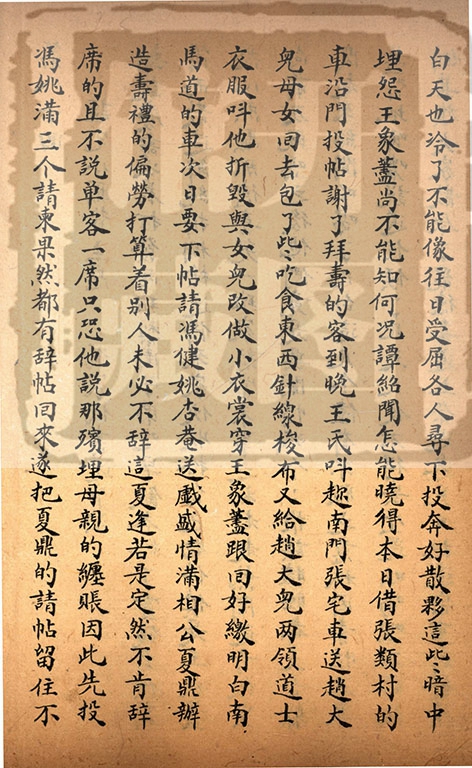 白天也冷了不能像往日受屈各人尋下投奔好散夥這些暗中
埋怨王象藎尚不能知何况譚紹聞怎能曉得本日借張類村的
車沿門投帖謝了拜壽的客到晚王氏呌趂南門張宅車送趙大
兒母女回去包了些吃食東西針線梭布又給趙大兒两領道士
衣服呌他折毀與女兒改做小衣裳穿王象藎跟回好繳明白南
馬道的車次日要下帖請馮健姚杏菴送戲盛情滿相公夏鼎辦
造壽禮的偏勞打算着别人未必不辞這夏逢若是定然不肯辞
席的且不說单客一席只恐他說那殯埋母親的纏賬因此先投
馮姚滿三个請柬果然都有辞帖回來遂把夏鼎的請帖留住不